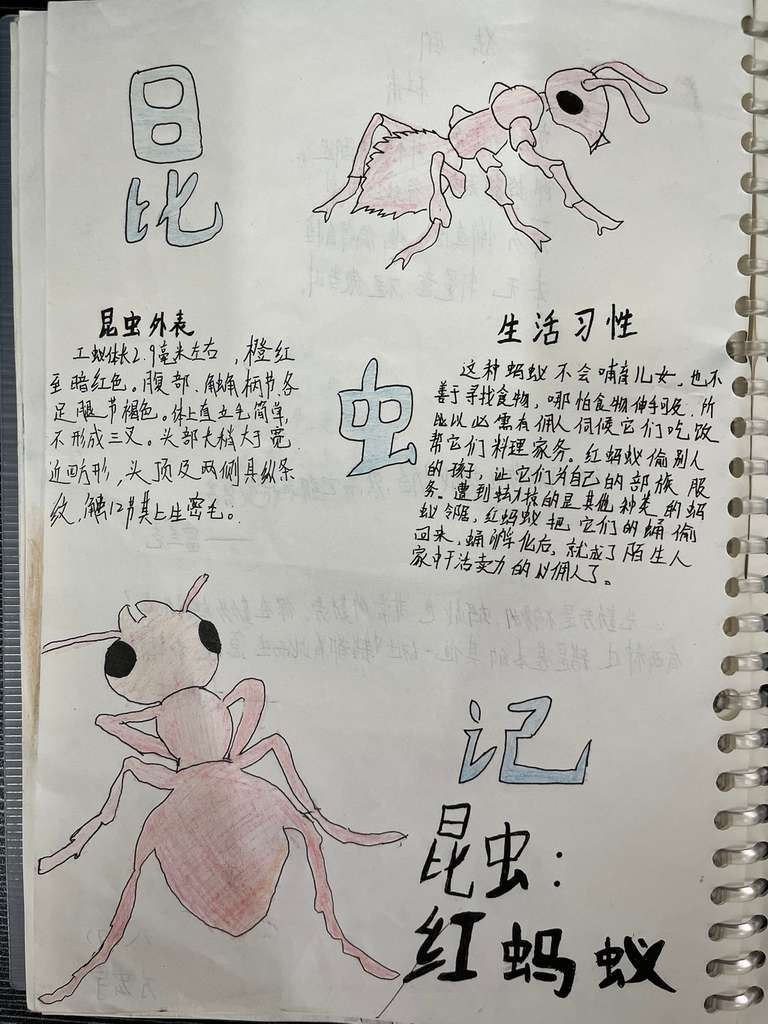 昆
虫
记
昆虫外表
工蚁体长2.9毫米左右，橙红
至暗红色。腹部、触角柄节、各
足腿节褐色。体上直立毛简单，
不形成三叉。头部大长稍大于宽，
近四方形，头顶及两侧具纵条
纹，触12节其上生密毛。
生活习性
这种蚂蚁不会哺育儿女，也不
善于寻找食物，哪怕食物伸手可及，所
以必需有佣人伺候它们吃饭
帮它们料理家务。红蚂蚁偷别人
的孩子，让它们为自己的部族服
务。遭到的是其他种类的蚂
蚁邻居，红蚂蚁把它们的蛹偷
回来，蛹孵化后，就成了陌生人
家中干活卖力的佣人了。
昆虫：
红蚂蚁